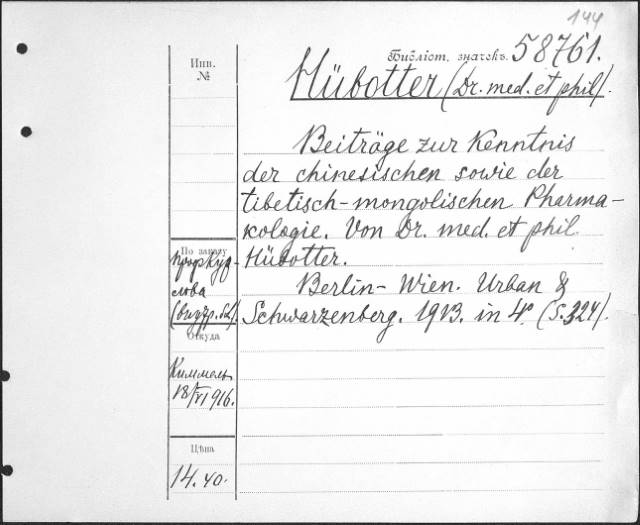 144
Библіот. значекъ. 58761.
Инв.
№
Hübotter (Dr. med. et phil).
Beiträge zur Kenntnis
der chinesischen sowie der
tibetisch-mongolischen Pharma-
kologie. Von Dr. med. et phil
Hübotter.
Berlin- Wien. Urban &
Schwarzenberg. 1913. in 4° (S. 324).
По заказу
проф Кур-
лова
Откуда
Киммель
18/VI 1916.
Цѣна
14.40.